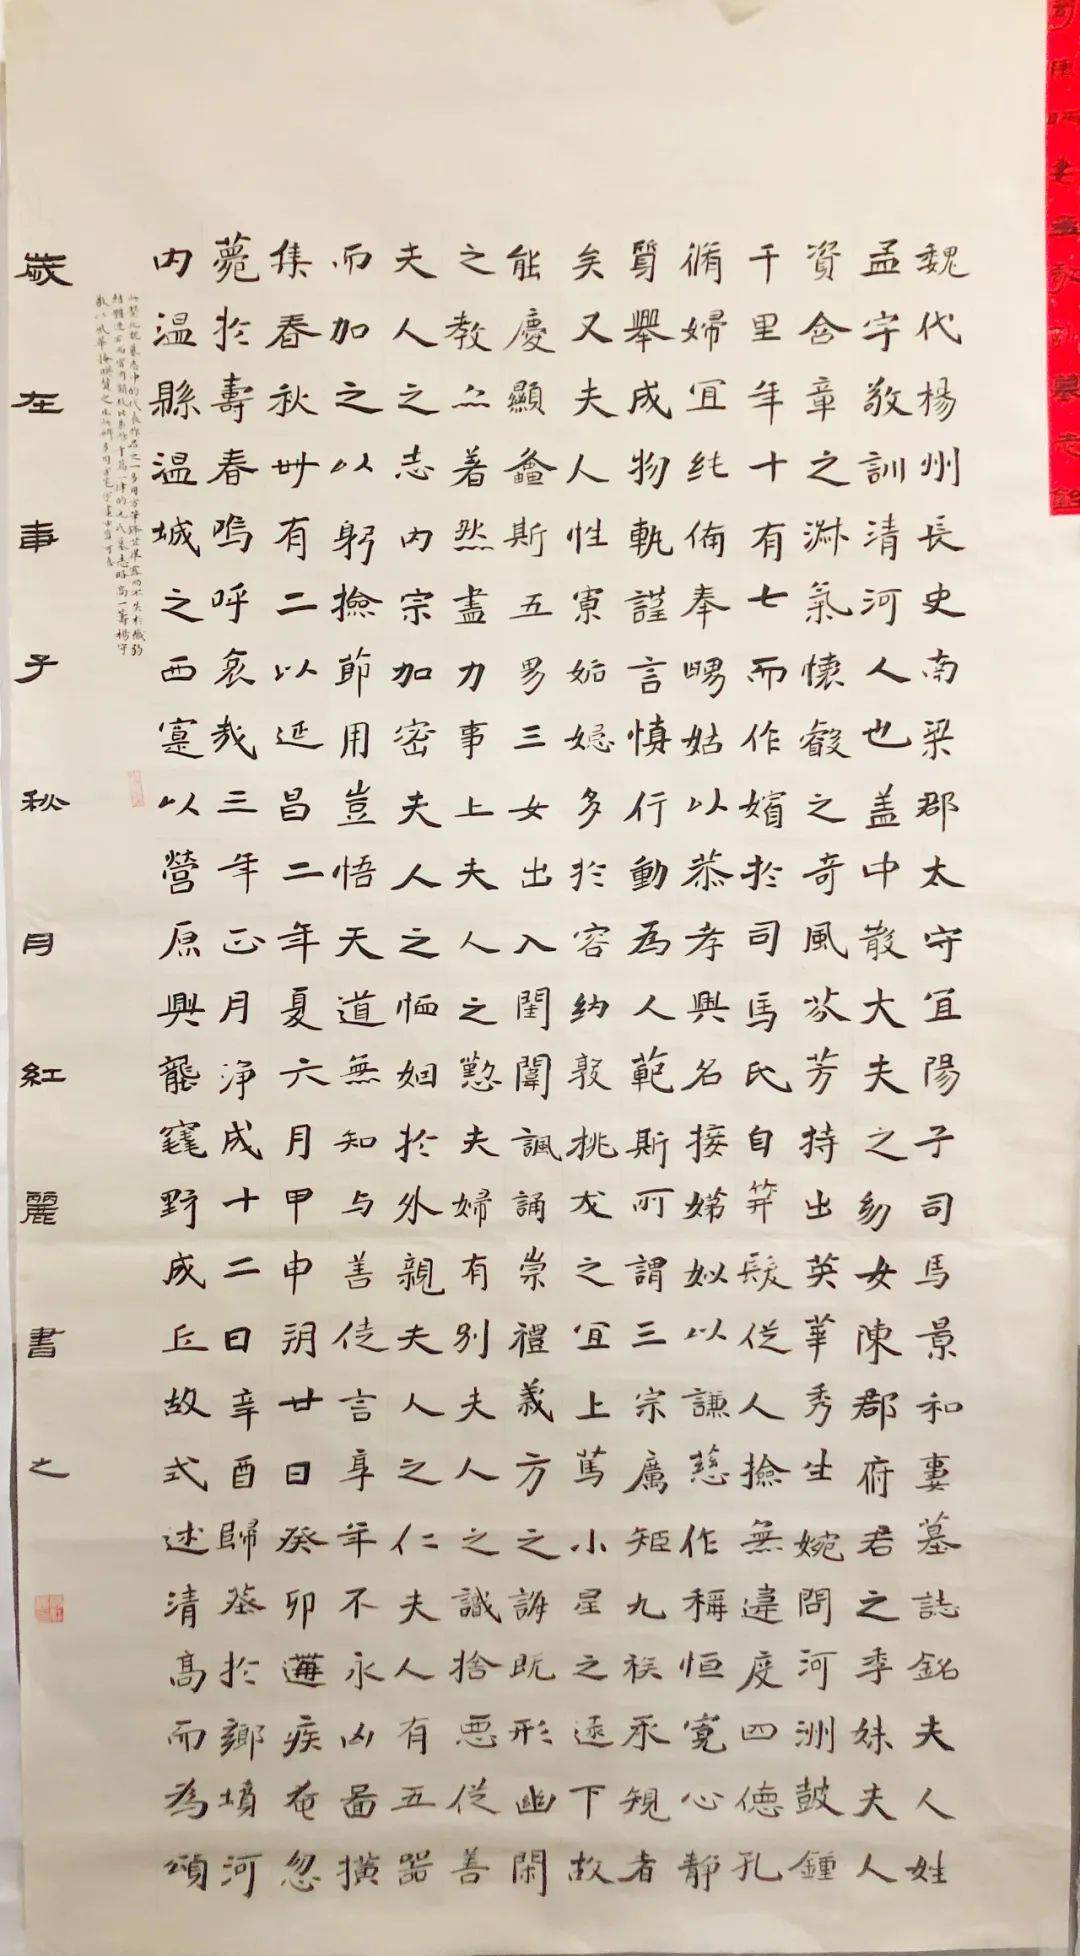 孟敬訓墓志銘
魏代楊州長史南梁郡太守宜陽子司馬景和妻墓誌銘夫人姓
孟字敬訓清河人也盖中散大夫之幼女陳郡府君之季妹夫人
資含章之淋氣懷叡之奇風芬芳持出英華秀生婉問河洲鼓鍾
千里年十有七而作嬪於司馬氏自笄髮從人撿無違度四德孔
脩婦宜純備奉舅姑以恭孝興名接娣姒以謙慈作稱恒寬心静
質舉成物軌謹言慎行動為人範斯所謂三宗厲矩九族承規者
矣又夫人性寡妬媢多於容納敦桃夭之宜上篤小星之遜下故
能慶顯螽斯五男三女出入閨闈諷誦崇禮義方之誨既形幽閑
之教亦着然盡力事上夫人之懃夫婦有別夫人之識捨悪從善
夫人之志内宗加密夫人之恤姻於外親夫人之仁夫人有五器
而加之以躬撿節用豈悟天道無知与善徒言享年不永凶圖横
集春秋卌有二以延昌二年夏六月甲申朔廿日癸卯遘疾奄忽
薨於壽春嗚呼哀哉三年正月淨成十二日辛酉歸葬於鄉墳河
内温縣温城之西寔以營原興壟窀野成丘故式述清高而為頌
歲在庚子秋月紅麗書之